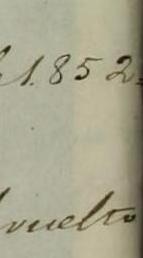 1.852
vuelto